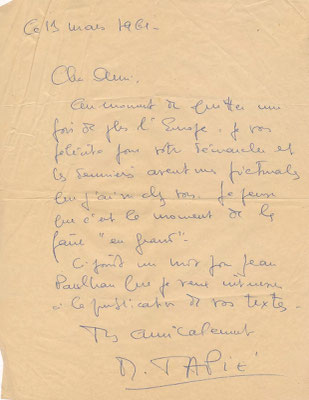 Ce 13 mars 1961.
Cher Ami.
Au moment de quitter une
fois de plus l'Europe, je vous
félicite pour votre démarche et
les derniers aventures picturales
que j'ai vu chez vous. Je pense
que c'est le moment de le
faire "en grand".
Ci joint un mot pour Jean
Paulhan que je veux intéresser
à la publication de vos textes.
Très amicalement
M. TAPIÉ